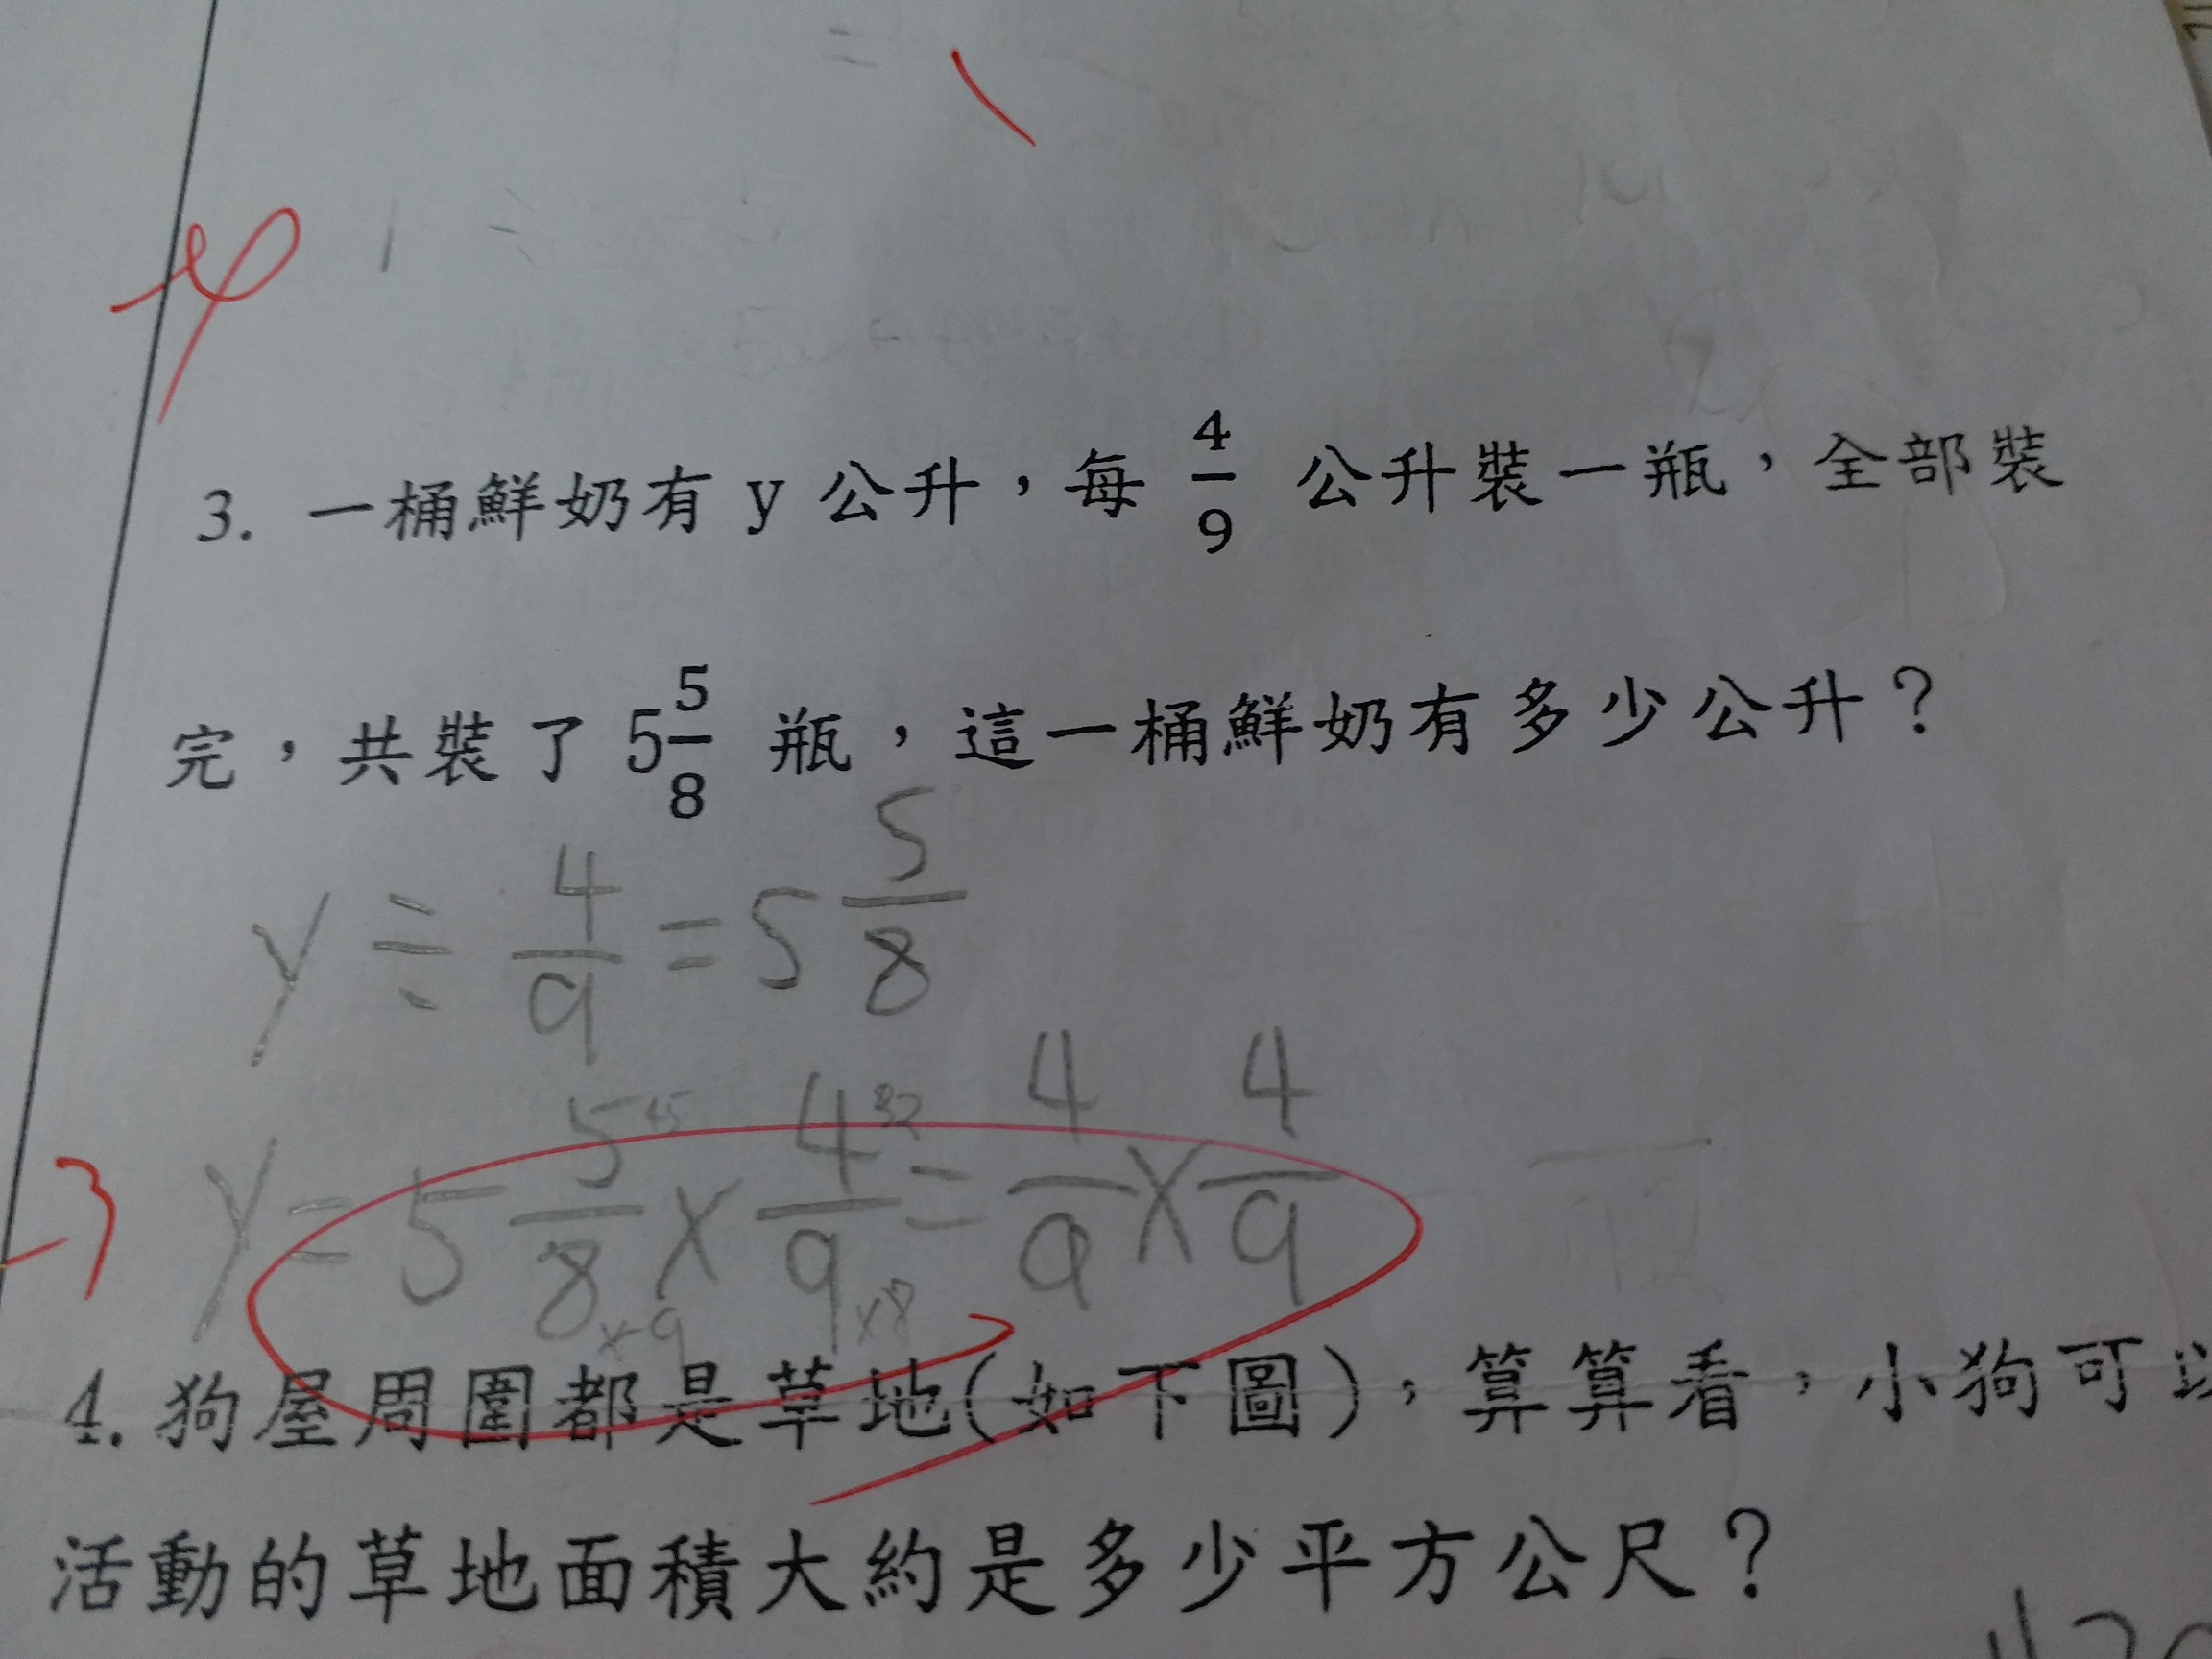 =
-4
1 ÷
3. 一桶鮮奶有 y 公升，每 4/9 公升裝一瓶，全部裝
完，共裝了 5 5/8 瓶，這一桶鮮奶有多少公升？
y ÷ 4/9 = 5 5/8
-3 y = 5 5/8 × 4/9 = 4/9 × 4/9
45 32
×9 ×8
4. 狗屋周圍都是草地(如下圖)，算算看，小狗可以
活動的草地面積大約是多少平方公尺？